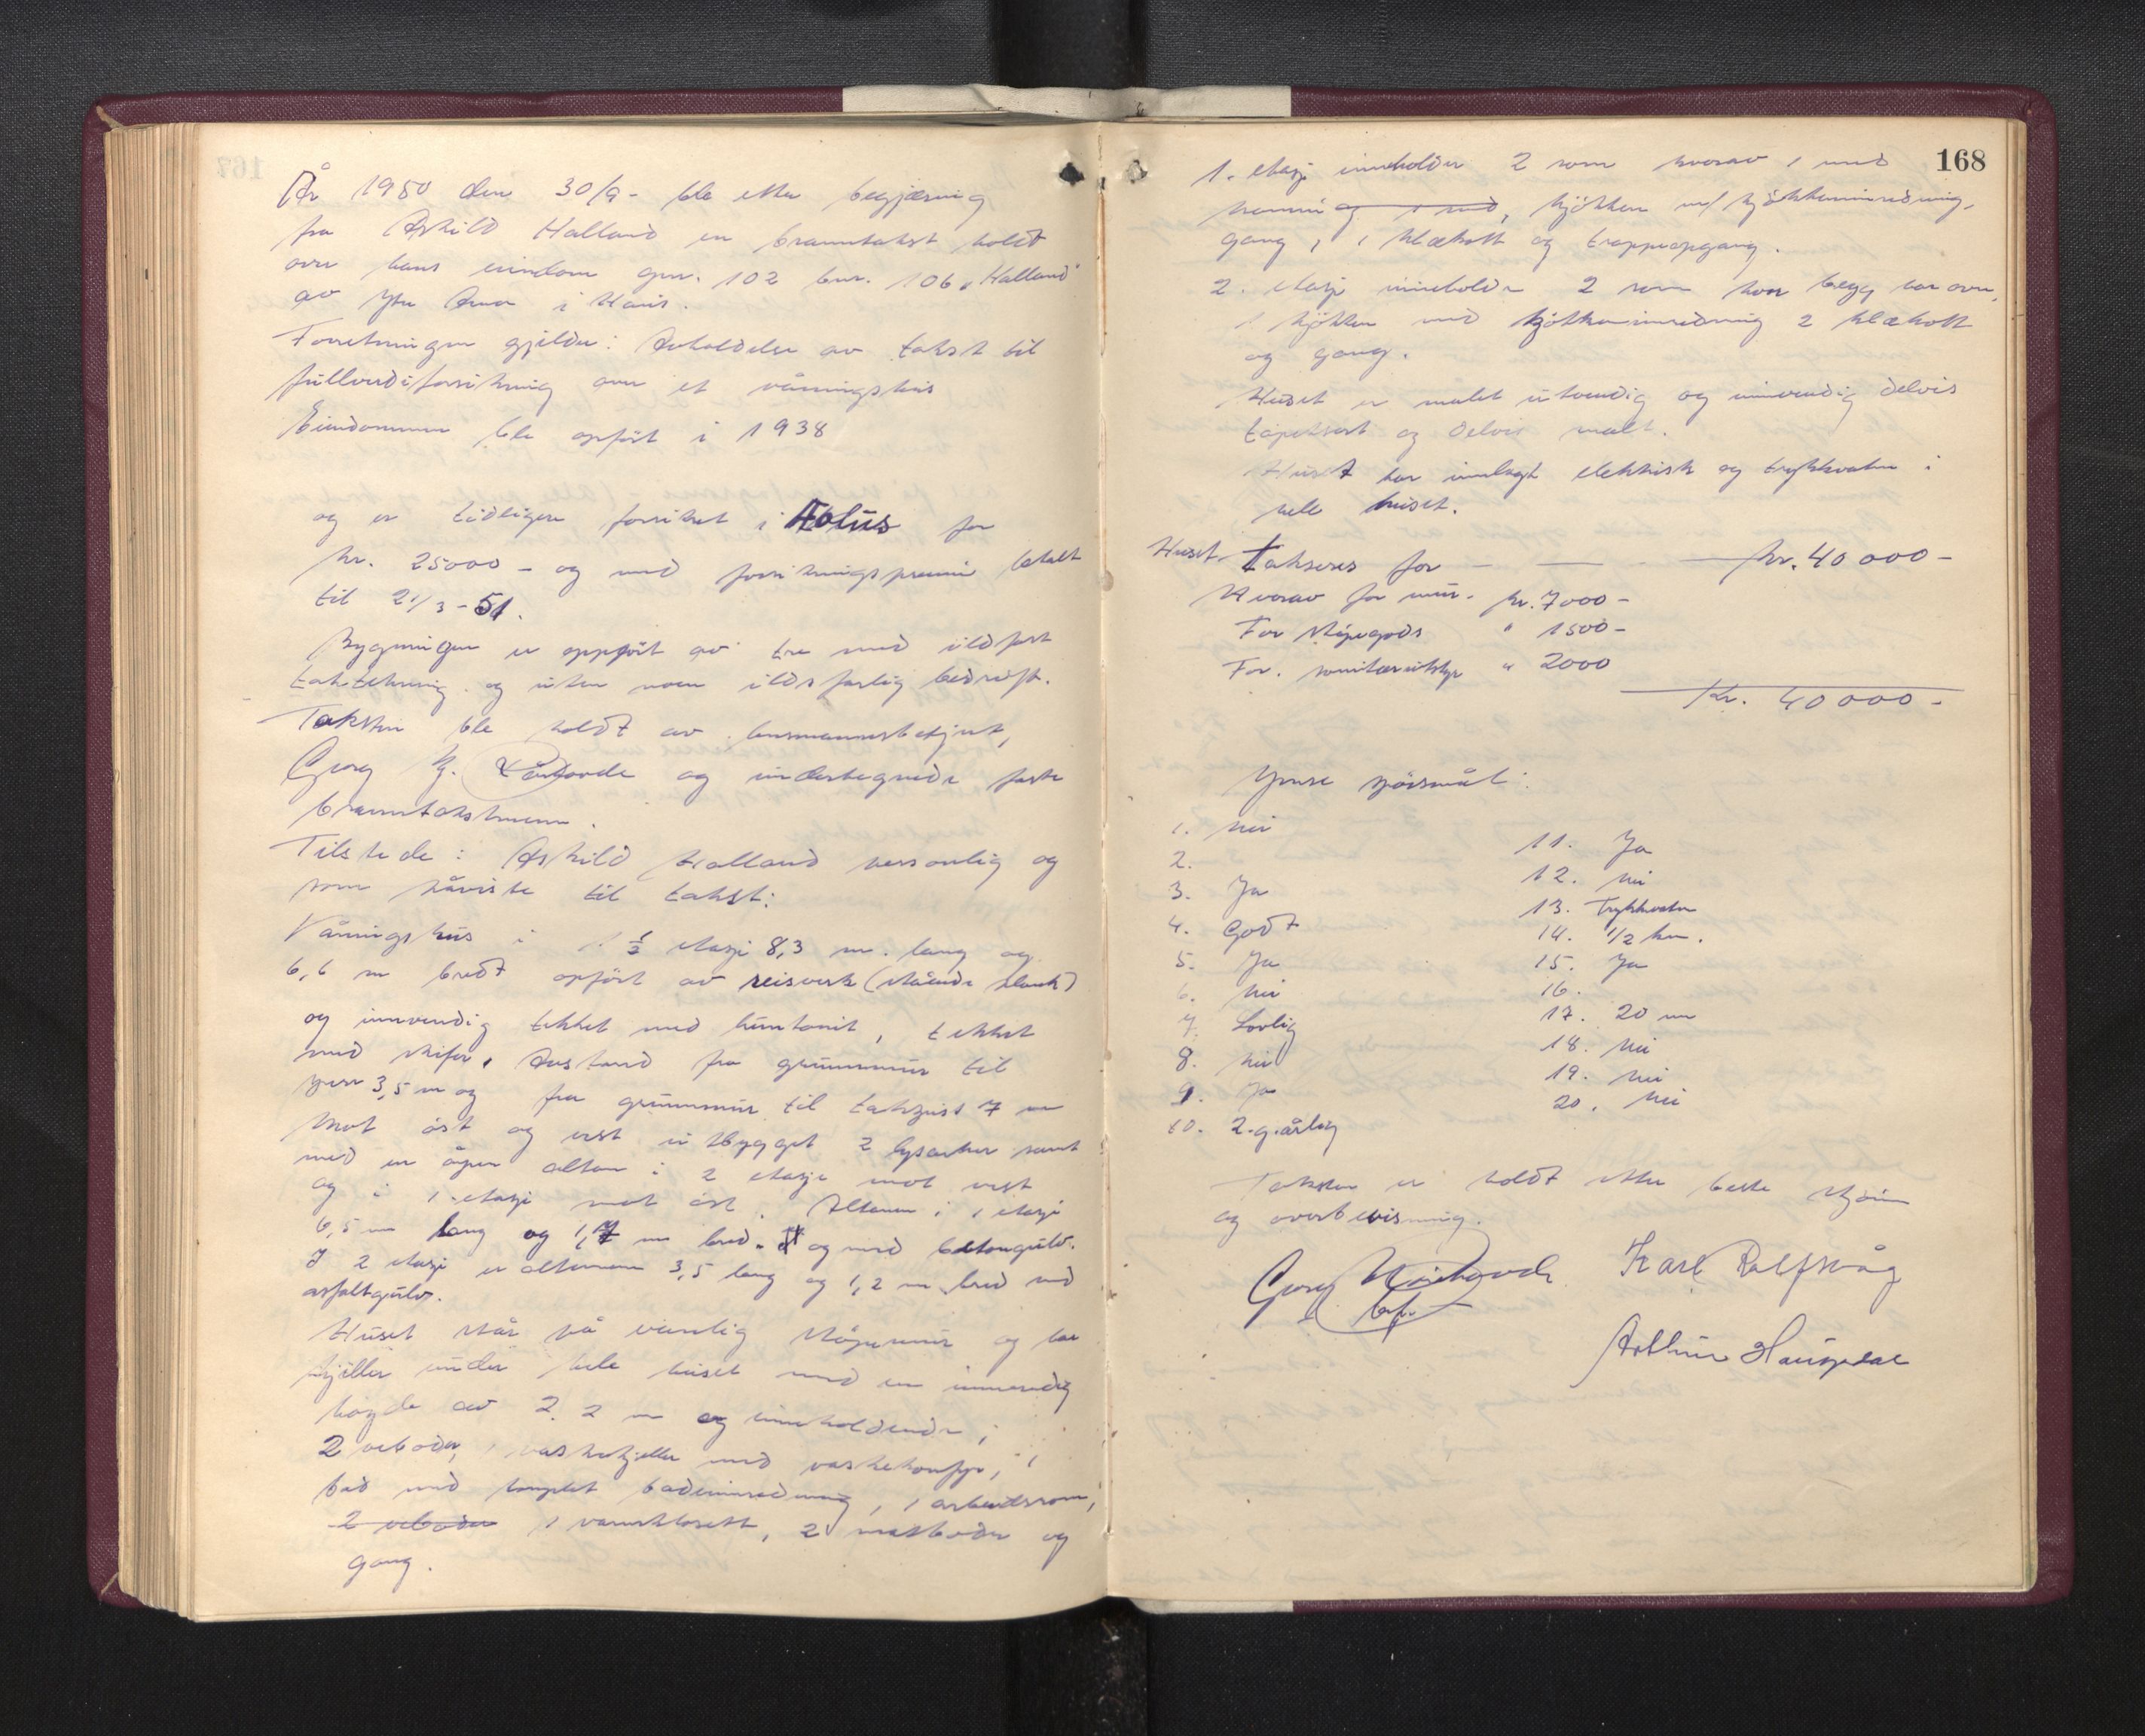 År 1950 den 30/9- ble etter begjæring
fra Askild Halland en branntakst holdt
over hans eiendom gnr. 102 bnr. 106 „Halland"
av Ytre Arna i Haus.
Forretningen gjelder: Avholdelse av takst til
fullverdiforsikring over et våningshus
Eiendommen ble opført i 1938
og er tidligere forsikret i Æolus for
kr. 25000 - og med forsikringspremie betalt
til 21/3-51.
Bygningen er oppført av tre med ildfast
taktekning og uten noen ildsfarlig bedrift.
Taksten ble holdt av lensmannsbetjent,
Georg og undertegnede faste
branntakstmenn.
Tilstede: Askild Halland personlig og
som påviste til takst:
Våningshus i 1 1/2 etasje 8,3 m. lang og
6,6 m bredt opført av reisverk (stående plank)
og innvendig tekket med huntonit, tekket
med skifer. Avstand fra grunnmur til
3,5 m og fra grunnmur til 7 m
Mot øst og vest utbygget 2 lysarker samt
med en åpen altan i 2 etasje mot vest
og i 1. etasje mot øst. Altanen i 1 etasje
6,5 m lang og 1,7 m bred. og med betongulv.
I 2 etasje er altanen 3,5 lang og 1,2 m bred med
asfaltgulv.
Huset står på vanlig støpemur og har
kjeller under hele huset med en innvendig
høyde av 2.2 m og inneholdende;
2 veboder, 1 vaskekjeller med vaskekonfyr, 1
bad med komplet badeinnredning, 1 arbeidsrom,
2 veboder 1 vannklosett, 2 matboder og
gang.
168
1. etasje inneholder 2 rom hvorav 1 med
og 1 med, kjøkken m/ kjøkkeninredning,
gang, 1 klækott og trappeopgang.
2. etasje inneholder 2 rom hvor begge har ovn,
1 kjøkken med kjøkkeninredning 2 klækott
og gang.
Huset er malt utvendig og innvendig delvis
tapetsert og delvis malt.
Huset har innlagt elektrisk og trykkvatn i
hele huset.
Huset takseres for — — kr. 40 000 -
Hvorav for mur. kr. 7000 -
For støpegods " 1500 -
For. sanitærutstyr " 2000
Kr. 40 000 -
Ymse spörsmål:
1. Nei
2.
3. Ja
4. Godt
5. Ja
6. Nei
7. Lovlig
8. Nei
9. Ja
10. 2.g.årlig
11. Ja
12. Nei
13. Trykkvatn
14. 1/2 km.
15. Ja
16.
17. 20 m
18. Nei
19. Nei
20. Nei
Taksten er holdt etter beste skjønn
og overbevisning.
Georg
bf.
Karl Rolfsvåg
Arthur Haugedal